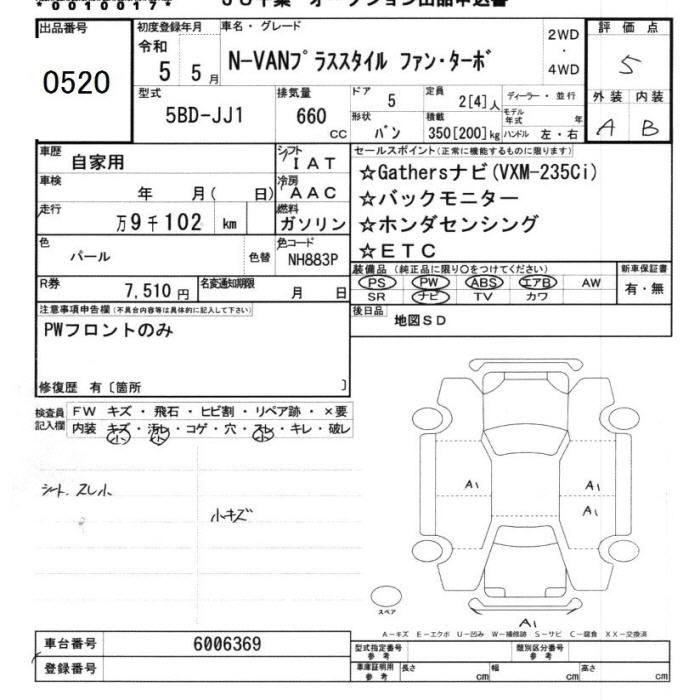 *00100017*
JU千葉 オークション出品申込書
出品番号
0520
初度登録年月
令和
5 5月
車名・グレード
N-VANプラススタイル ファン・ターボ
2WD
・
4WD
評価点
5
外装 内装
A B
型式
5BD-JJ1
排気量
660
CC
ドア
5
定員
2[4]人
ディーラー・並行
形状
バン
積載
350[200]kg
モデル年式 年
ハンドル 左・右
車歴
自家用
シフト
IAT
セールスポイント(正常に機能するものに限ります)
☆Gathersナビ(VXM-235Ci)
☆バックモニター
☆ホンダセンシング
☆ETC
車検
年 月( 日)
冷房
AAC
走行
万9千102 km
燃料
ガソリン
色
パール
色替
色コード
NH883P
装備品(純正品に限り○をつけてください)
PS PW ABS エアB AW
SR ナビ TV カワ
新車保証書
有・無
R券
7,510円
名変通知期限
月 日
後日品
地図SD
注意事項申告欄(不具合内容等は具体的に記入して下さい)
PWフロントのみ
修復歴 有〔箇所 〕
検査員
記入欄
FW キズ・飛石・ヒビ割・リペア跡・×要
内装 キズ・汚れ・コゲ・穴・スレ・キレ・破レ
小 小 小
シート、スレ小
小キズ
A1
A1
A1
A1
スペア
A-キズ E-エクボ U-凹み W-補修跡 S-サビ C-腐食 XX-交換済
車台番号
6006369
登録番号
型式指定番号
参考
類別区分番号
参考
車庫証明用
参考
長さ cm
幅 cm
高さ cm